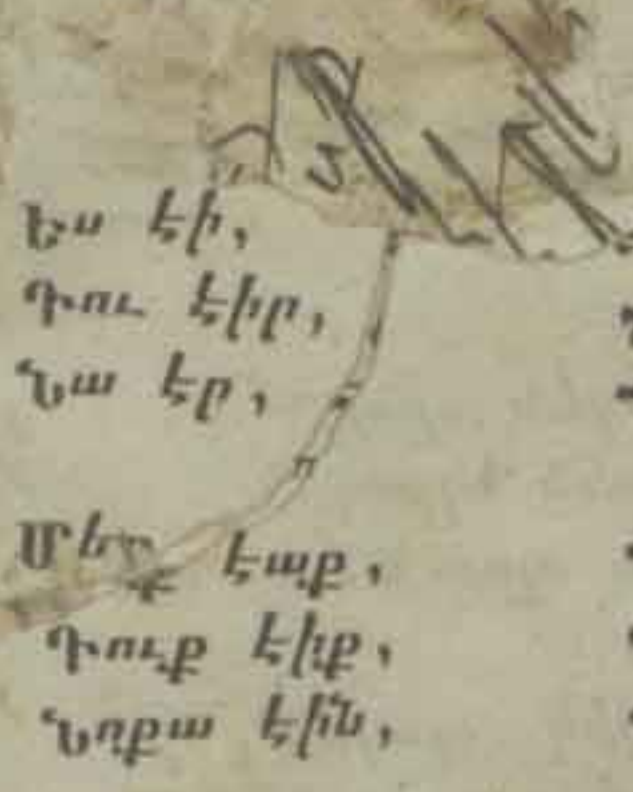 Ես էի,
Դու էիր,
Նա էր,
Մեք էաք,
Դուք էիք,
Նոքա էին,